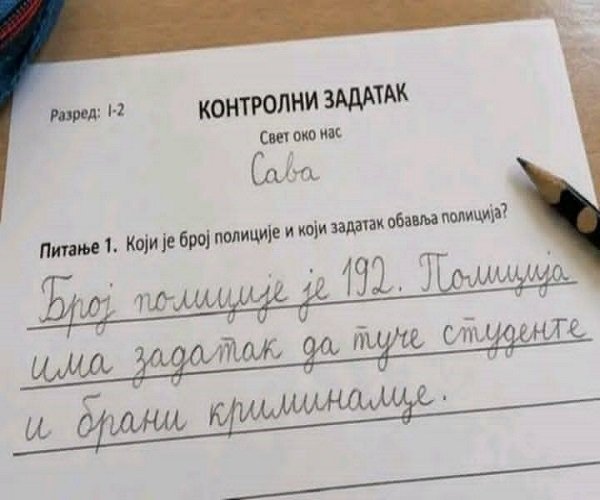 Разред: I-2
КОНТРОЛНИ ЗАДАТАК
Свет око нас
Сава
Питање 1. Који је број полиције и који задатак обавља полиција?
Број полиције је 192. Полиција
има задатак да туче студенте
и брани криминалце.